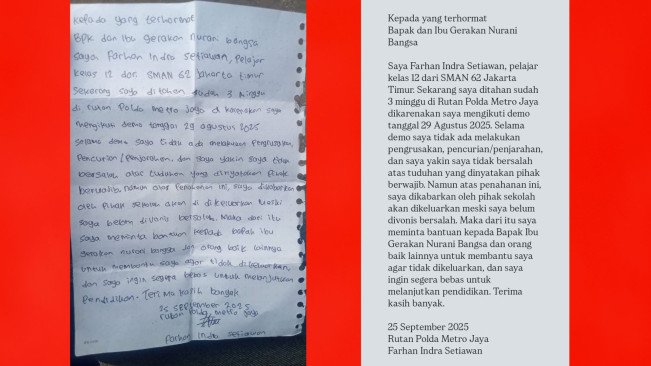 Kepada yang terhormat
BPK dan Ibu gerakan nurani bangsa
saya Farhan Indra Setiawan, Pelajar
kelas 12 dari SMAN 62 Jakarta timur
Sekarang saya di tahan sudah 3 minggu
di rutan Polda metro Jaya di karenakan saya
mengikuti demo tanggal 29 agustus 2025
selama demo saya tidak ada melakukan Pengrusakan,
Pencurian/Penjarahan, dan saya yakin saya tidak
bersalah atas tuduhan yang dinyatakan Pihak
berwajib, namun atas Penahanan ini, saya dikabarkan
oleh Pihak sekolah akan di dikeluarkan meski
saya belum divonis bersalah. Maka dari itu
saya meminta bantuan kepada bapak ibu
gerakan nurani bangsa dan orang baik lainnya
untuk membantu saya agar tidak dikeluarkan,
dan saya ingin segera bebas untuk melanjutkan
Pendidikan. Terima kasih banyak.
25 September 2025
rutan Polda metro Jaya
Farhan Indra Setiawan
Kepada yang terhormat
Bapak dan Ibu Gerakan Nurani
Bangsa
Saya Farhan Indra Setiawan, pelajar
kelas 12 dari SMAN 62 Jakarta
Timur. Sekarang saya ditahan sudah
3 minggu di Rutan Polda Metro Jaya
dikarenakan saya mengikuti demo
tanggal 29 Agustus 2025. Selama
demo saya tidak ada melakukan
pengrusakan, pencurian/penjarahan,
dan saya yakin saya tidak bersalah
atas tuduhan yang dinyatakan pihak
berwajib. Namun atas penahanan ini,
saya dikabarkan oleh pihak sekolah
akan dikeluarkan meski saya belum
divonis bersalah. Maka dari itu saya
meminta bantuan kepada Bapak Ibu
Gerakan Nurani Bangsa dan orang
baik lainnya untuk membantu saya
agar tidak dikeluarkan, dan saya
ingin segera bebas untuk
melanjutkan pendidikan. Terima
kasih banyak.
25 September 2025
Rutan Polda Metro Jaya
Farhan Indra Setiawan